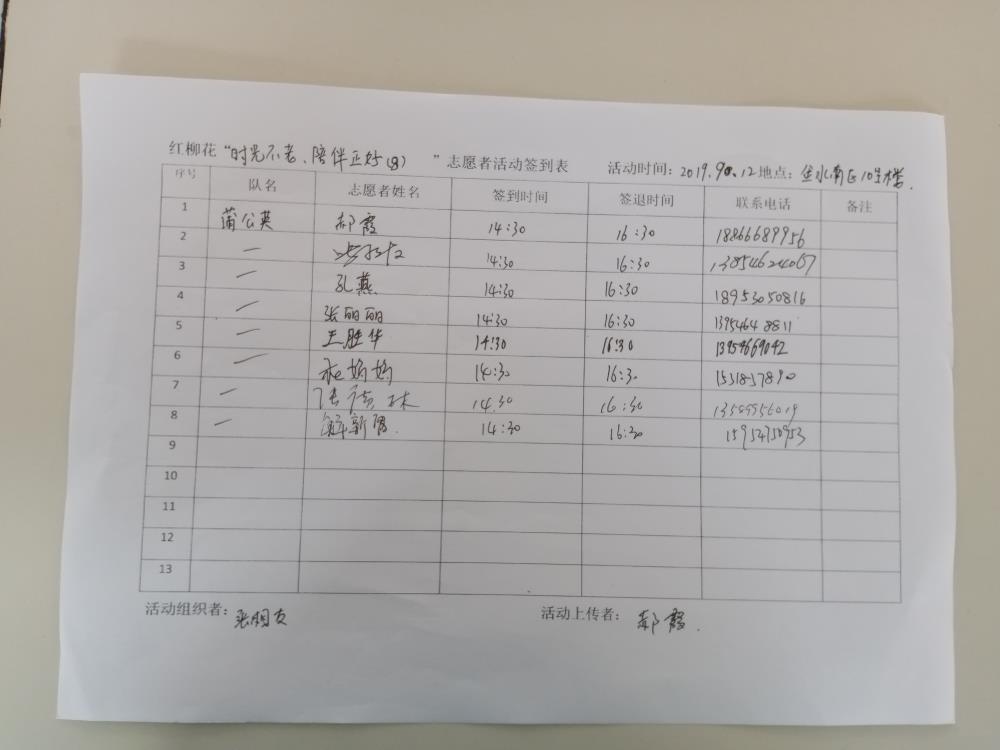 红柳花“时光不老、陪伴正好(8)”志愿者活动签到表 活动时间：2019.9.12 地点：金水南区10号楼.
序号 队名 志愿者姓名 签到时间 签退时间 联系电话 备注
1 蒲公英 郝霞 14:30 16:30 18866689956
2 — 14:30 16:30 13854624067
3 — 孔燕 14:30 16:30 18953050816
4 — 张丽丽 14:30 16:30 13954648811
5 — 王胜华 14:30 16:30 13954669042
6 — 14:30 16:30 1531857890
7 — 14.30 16:30
8 — 14:30 16:30 15954750953
9
10
11
12
13
活动组织者：张朋友 活动上传者：郝霞.